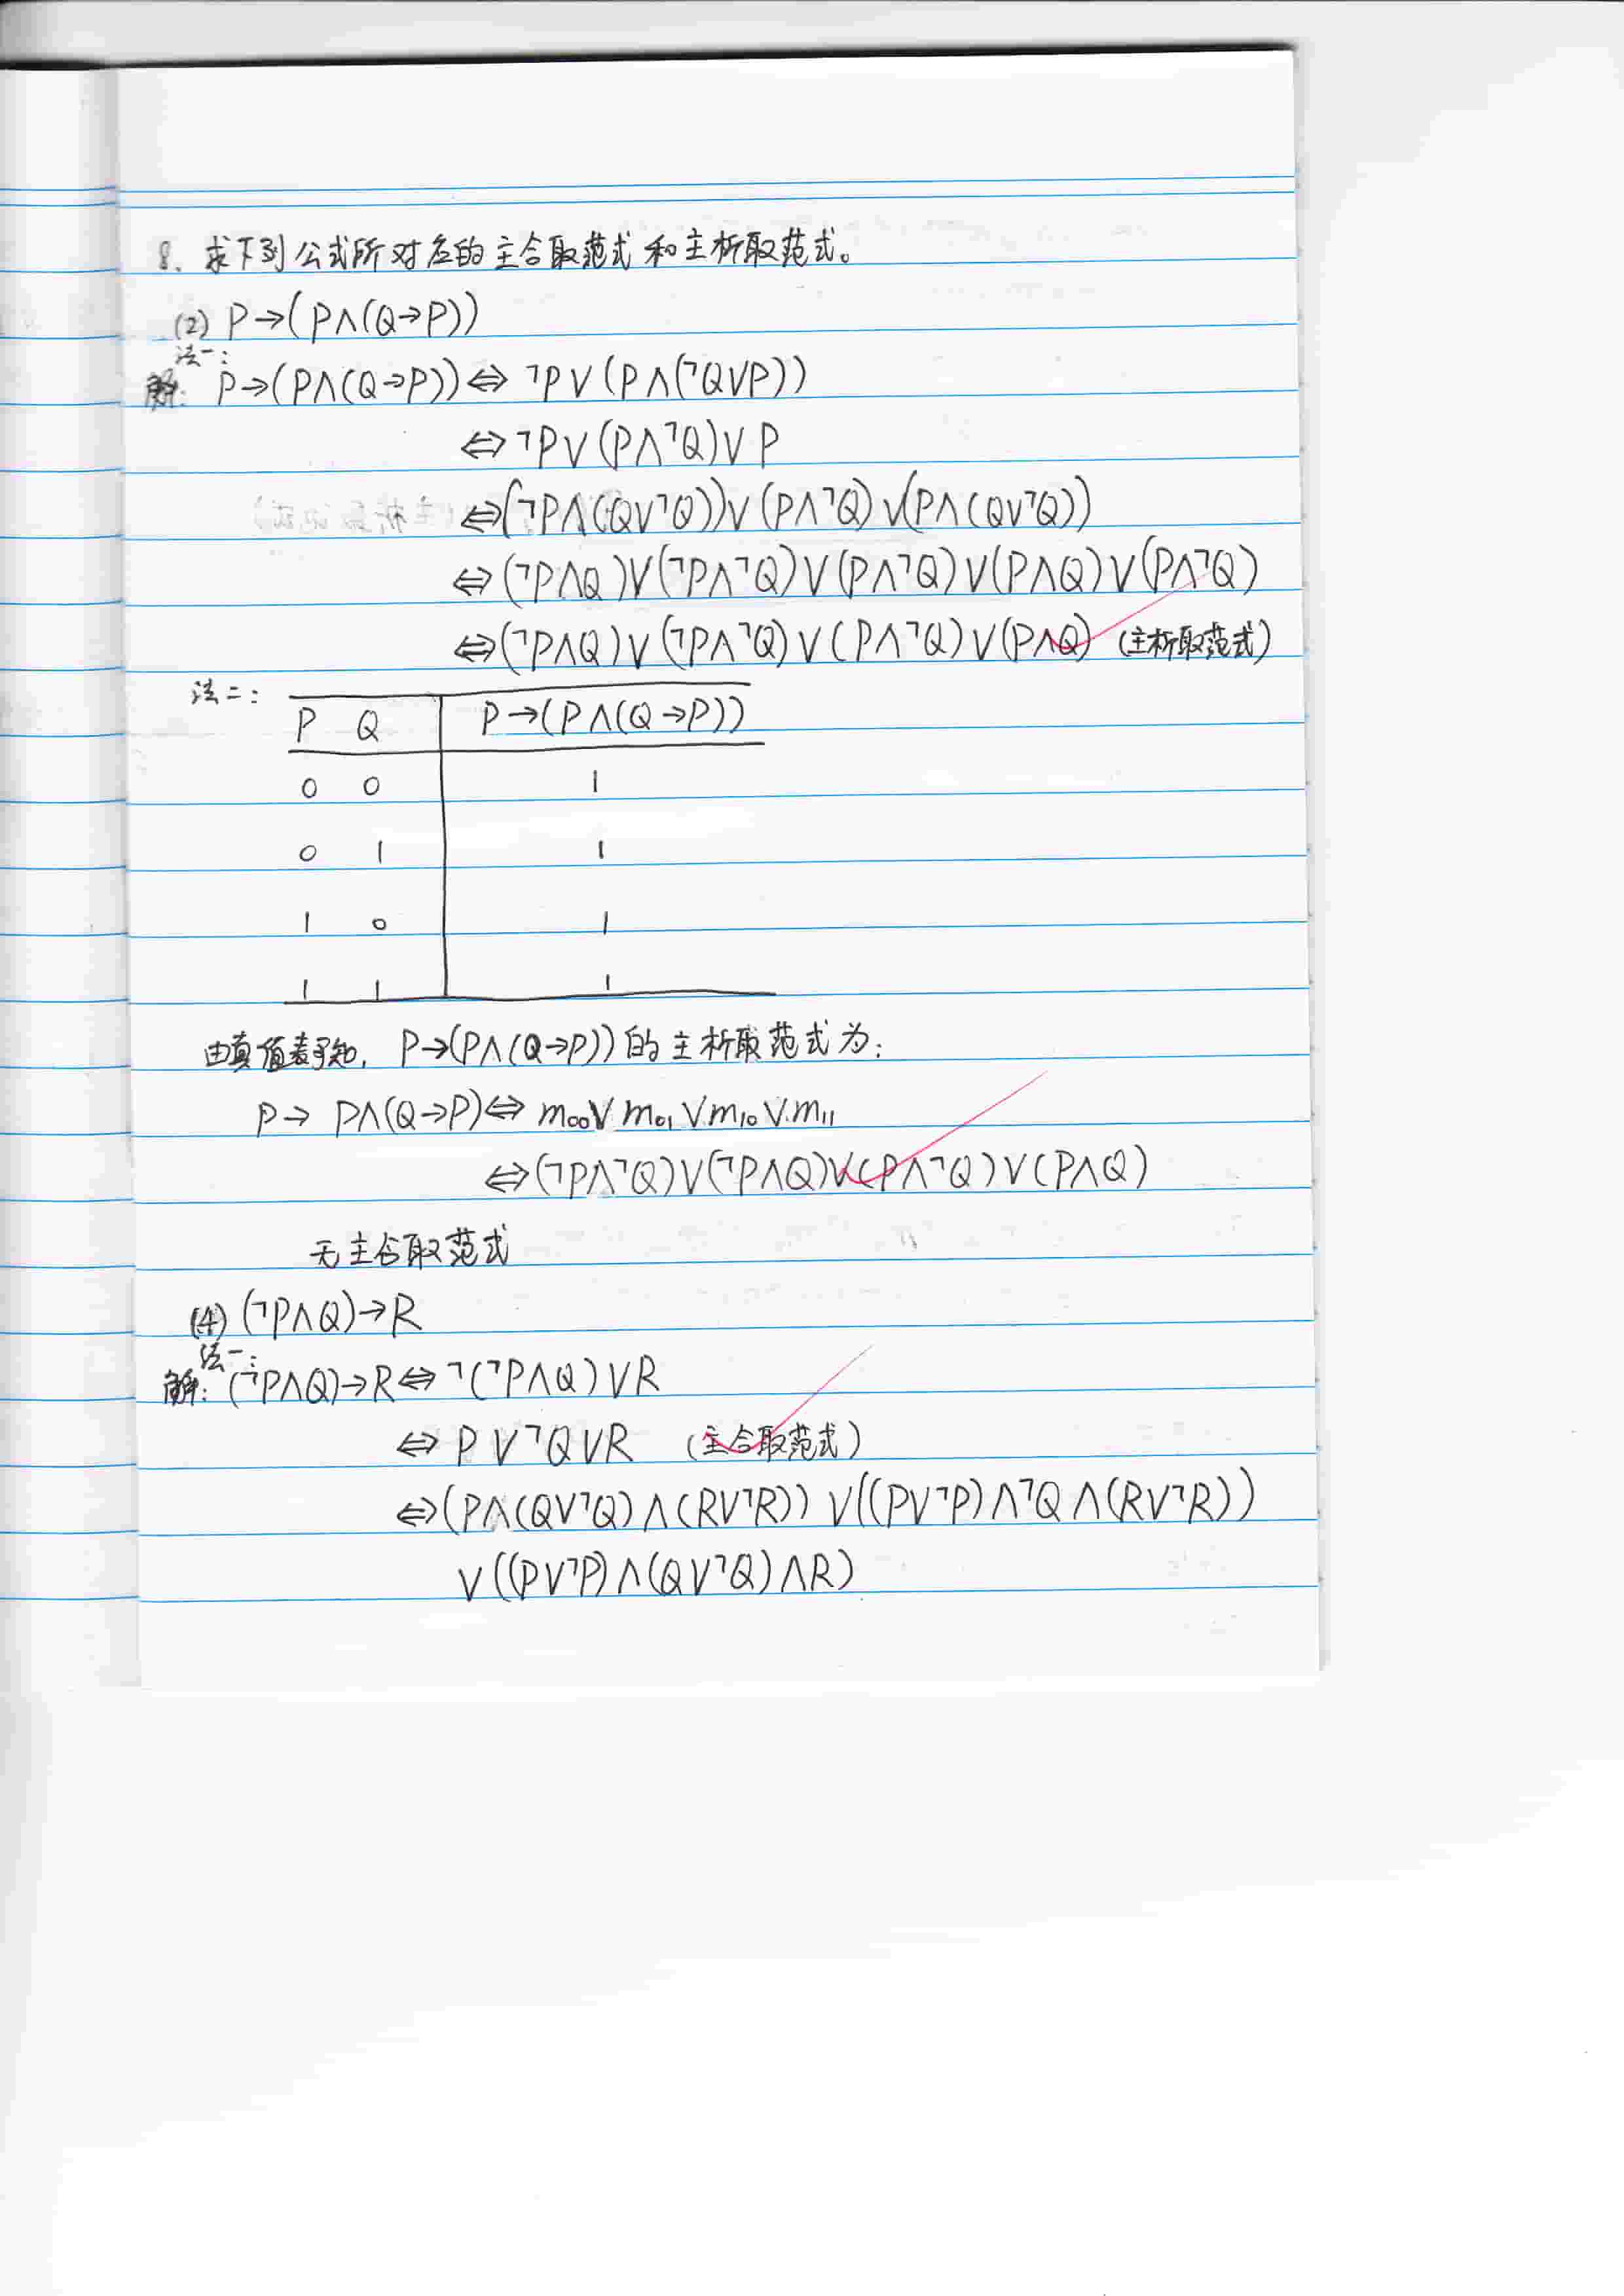 8. 求下列公式所对应的主合取范式和主析取范式。
(2) P→(P∧(Q→P))
法一:
解: P→(P∧(Q→P))⇔ ¬P∨(P∧(¬Q∨P))
⇔¬P∨(P∧¬Q)∨P
⇔(¬P∧(Q∨¬Q))∨(P∧¬Q)∨(P∧(Q∨¬Q))
⇔(¬P∧Q)∨(¬P∧¬Q)∨(P∧¬Q)∨(P∧Q)∨(P∧¬Q)
⇔(¬P∧Q)∨(¬P∧¬Q)∨(P∧¬Q)∨(P∧Q) (主析取范式)
法二:
P Q P→(P∧(Q→P))
0 0 1
0 1 1
1 0 1
1 1 1
由真值表可知, P→(P∧(Q→P))的主析取范式为:
P→ P∧(Q→P)⇔ m₀₀∨m₀₁∨m₁₀∨m₁₁
⇔(¬P∧¬Q)∨(¬P∧Q)∨(P∧¬Q)∨(P∧Q)
无主合取范式
(4) (¬P∧Q)→R
法一:
解: (¬P∧Q)→R⇔ ¬(¬P∧Q)∨R
⇔ P∨¬Q∨R (主合取范式)
⇔(P∧(Q∨¬Q)∧(R∨¬R)) ∨((P∨¬P)∧¬Q∧(R∨¬R))
∨((P∨¬P)∧(Q∨¬Q)∧R)